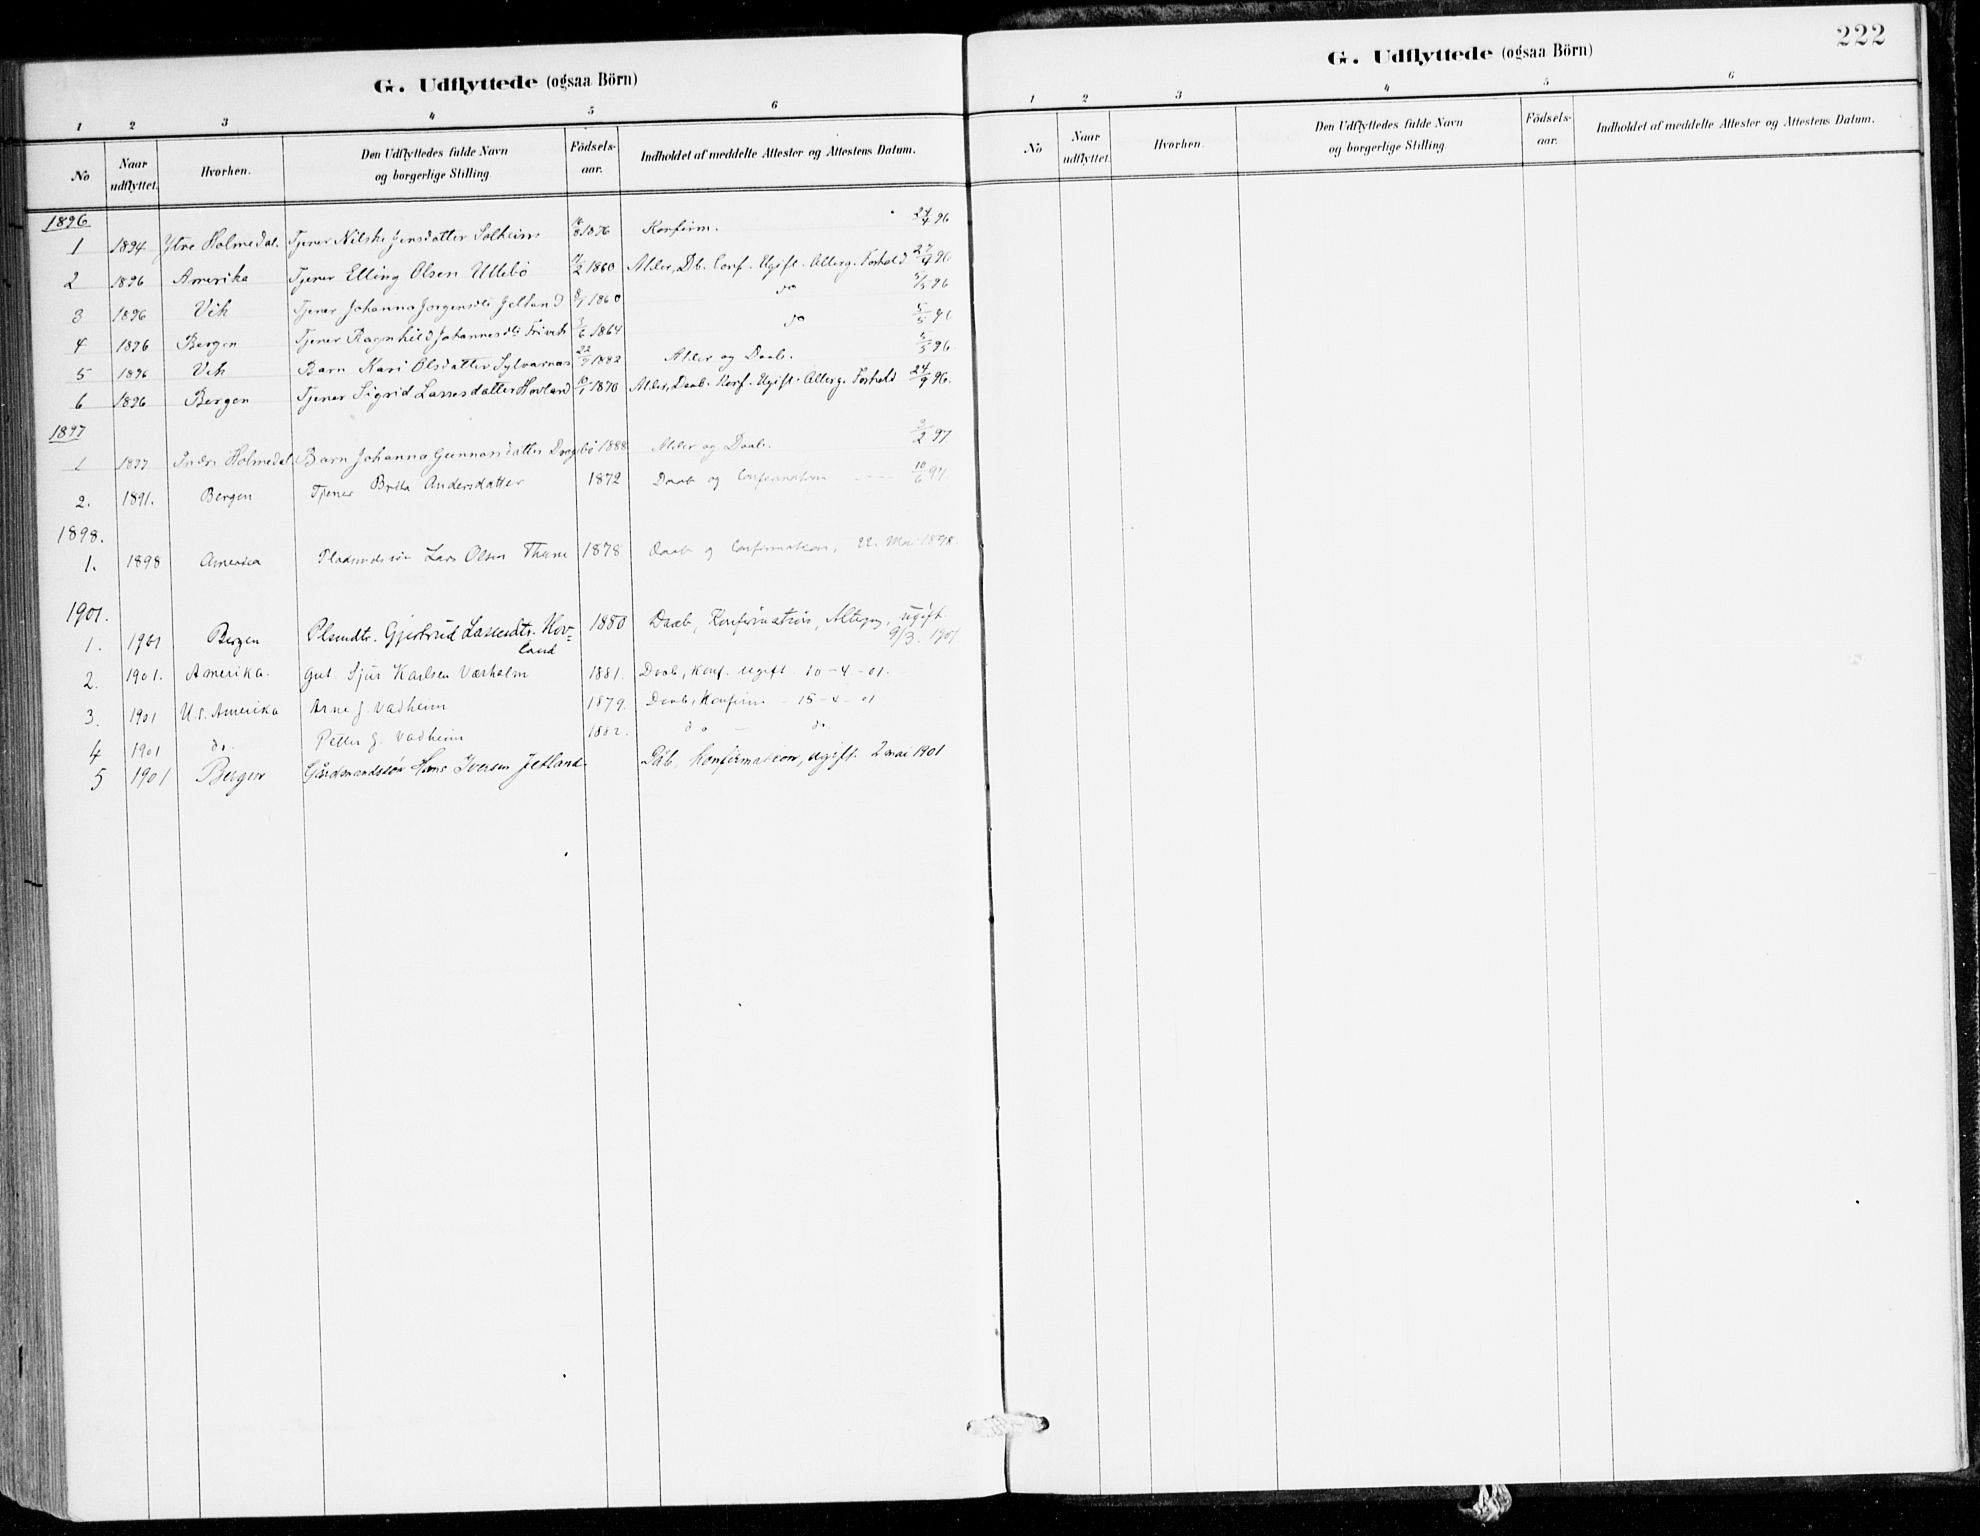 G. Udflyttede (ogsaa Börn)
1 2 3 4 5 6
No Naar udflyttet. Hvorhen. Den Udflyttedes fulde Navn og borgerlige Stilling. Födsels-aar. Indholdet af meddelte Attester og Attestens Datum.
1896
1 1894 Ytre Holmedal. Tjener Nilske Jensdatter Solheim 1876 Konfirm. 24/4 96
2 1896 Amerika Tjener Elling Olsen Uttebö 1860 Alder, Db. Conf. Ugift. Alterg. Forhold 27/4 96
3 1896 Vik Tjener Johanna Jorgensdtr Jetland 1860 do 5/5 96
4 1896 Bergen Tjener Ragnhild Johannesdtr 1864 do 5/5 96
5 1896 Vik Barn Kari Olsdatter Sylvarnas 1882 Alder og Daab. 5/5 96
6 1896 Bergen Tjener Sigrid Lassesdatter Hovland 1870 Alder, Daab. Konf. Ugift. Alterg. Forhold 24/9 96.
1897
1 1897 Indre Holmedal. Barn Johanna Gunnarsdatter 1888 Alder og Daab. 2 97
2. 1891. Bergen Tjener Brita Andersdatter 1872 Daab og Confirmation 10/6 97
1898.
1. 1898 Amerika Pladsmandssön Lars Olsen 1878 Daab og Confirmation, 22. Mai 1898.
1901.
1. 1901 Bergen Plsmdtr. Gjertrud Lassesdtr. Hov-
land 1880 Daab, Konfirmation, Altergg, ugift
9/3. 1901
2. 1901. Amerika. Gut. Sjur Karlsen Værholm 1881. Daab, Konf. ugift. 10-4-01.
3. 1901 U.S. Amerika Arne J. Vadheim 1879. Daab, Konfirm - 15-4-01
4 1901 do. Petter J. Vadheim 1882. do - do.
5 1901 Bergen Gårdmandssön Hans Iversen Jetland. Dåb, Konfirmation, ugift. 2 mai 1901
222
G. Udflyttede (ogsaa Börn)
1 2 3 4 5 6
No Naar udflyttet. Hvorhen. Den Udflyttedes fulde Navn og borgerlige Stilling. Födsels-aar. Indholdet af meddelte Attester og Attestens Datum.